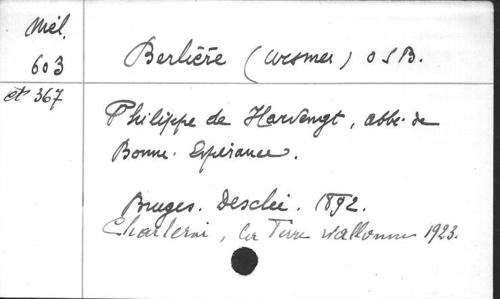 Mél.
603
et 367
Berlière (Ursmer) O S B.
Philippe de Harvengt, abbé de
Bonne-Espérance.
Bruges. Desclée. 1892.
Charleroi, La Terre wallonne 1923.